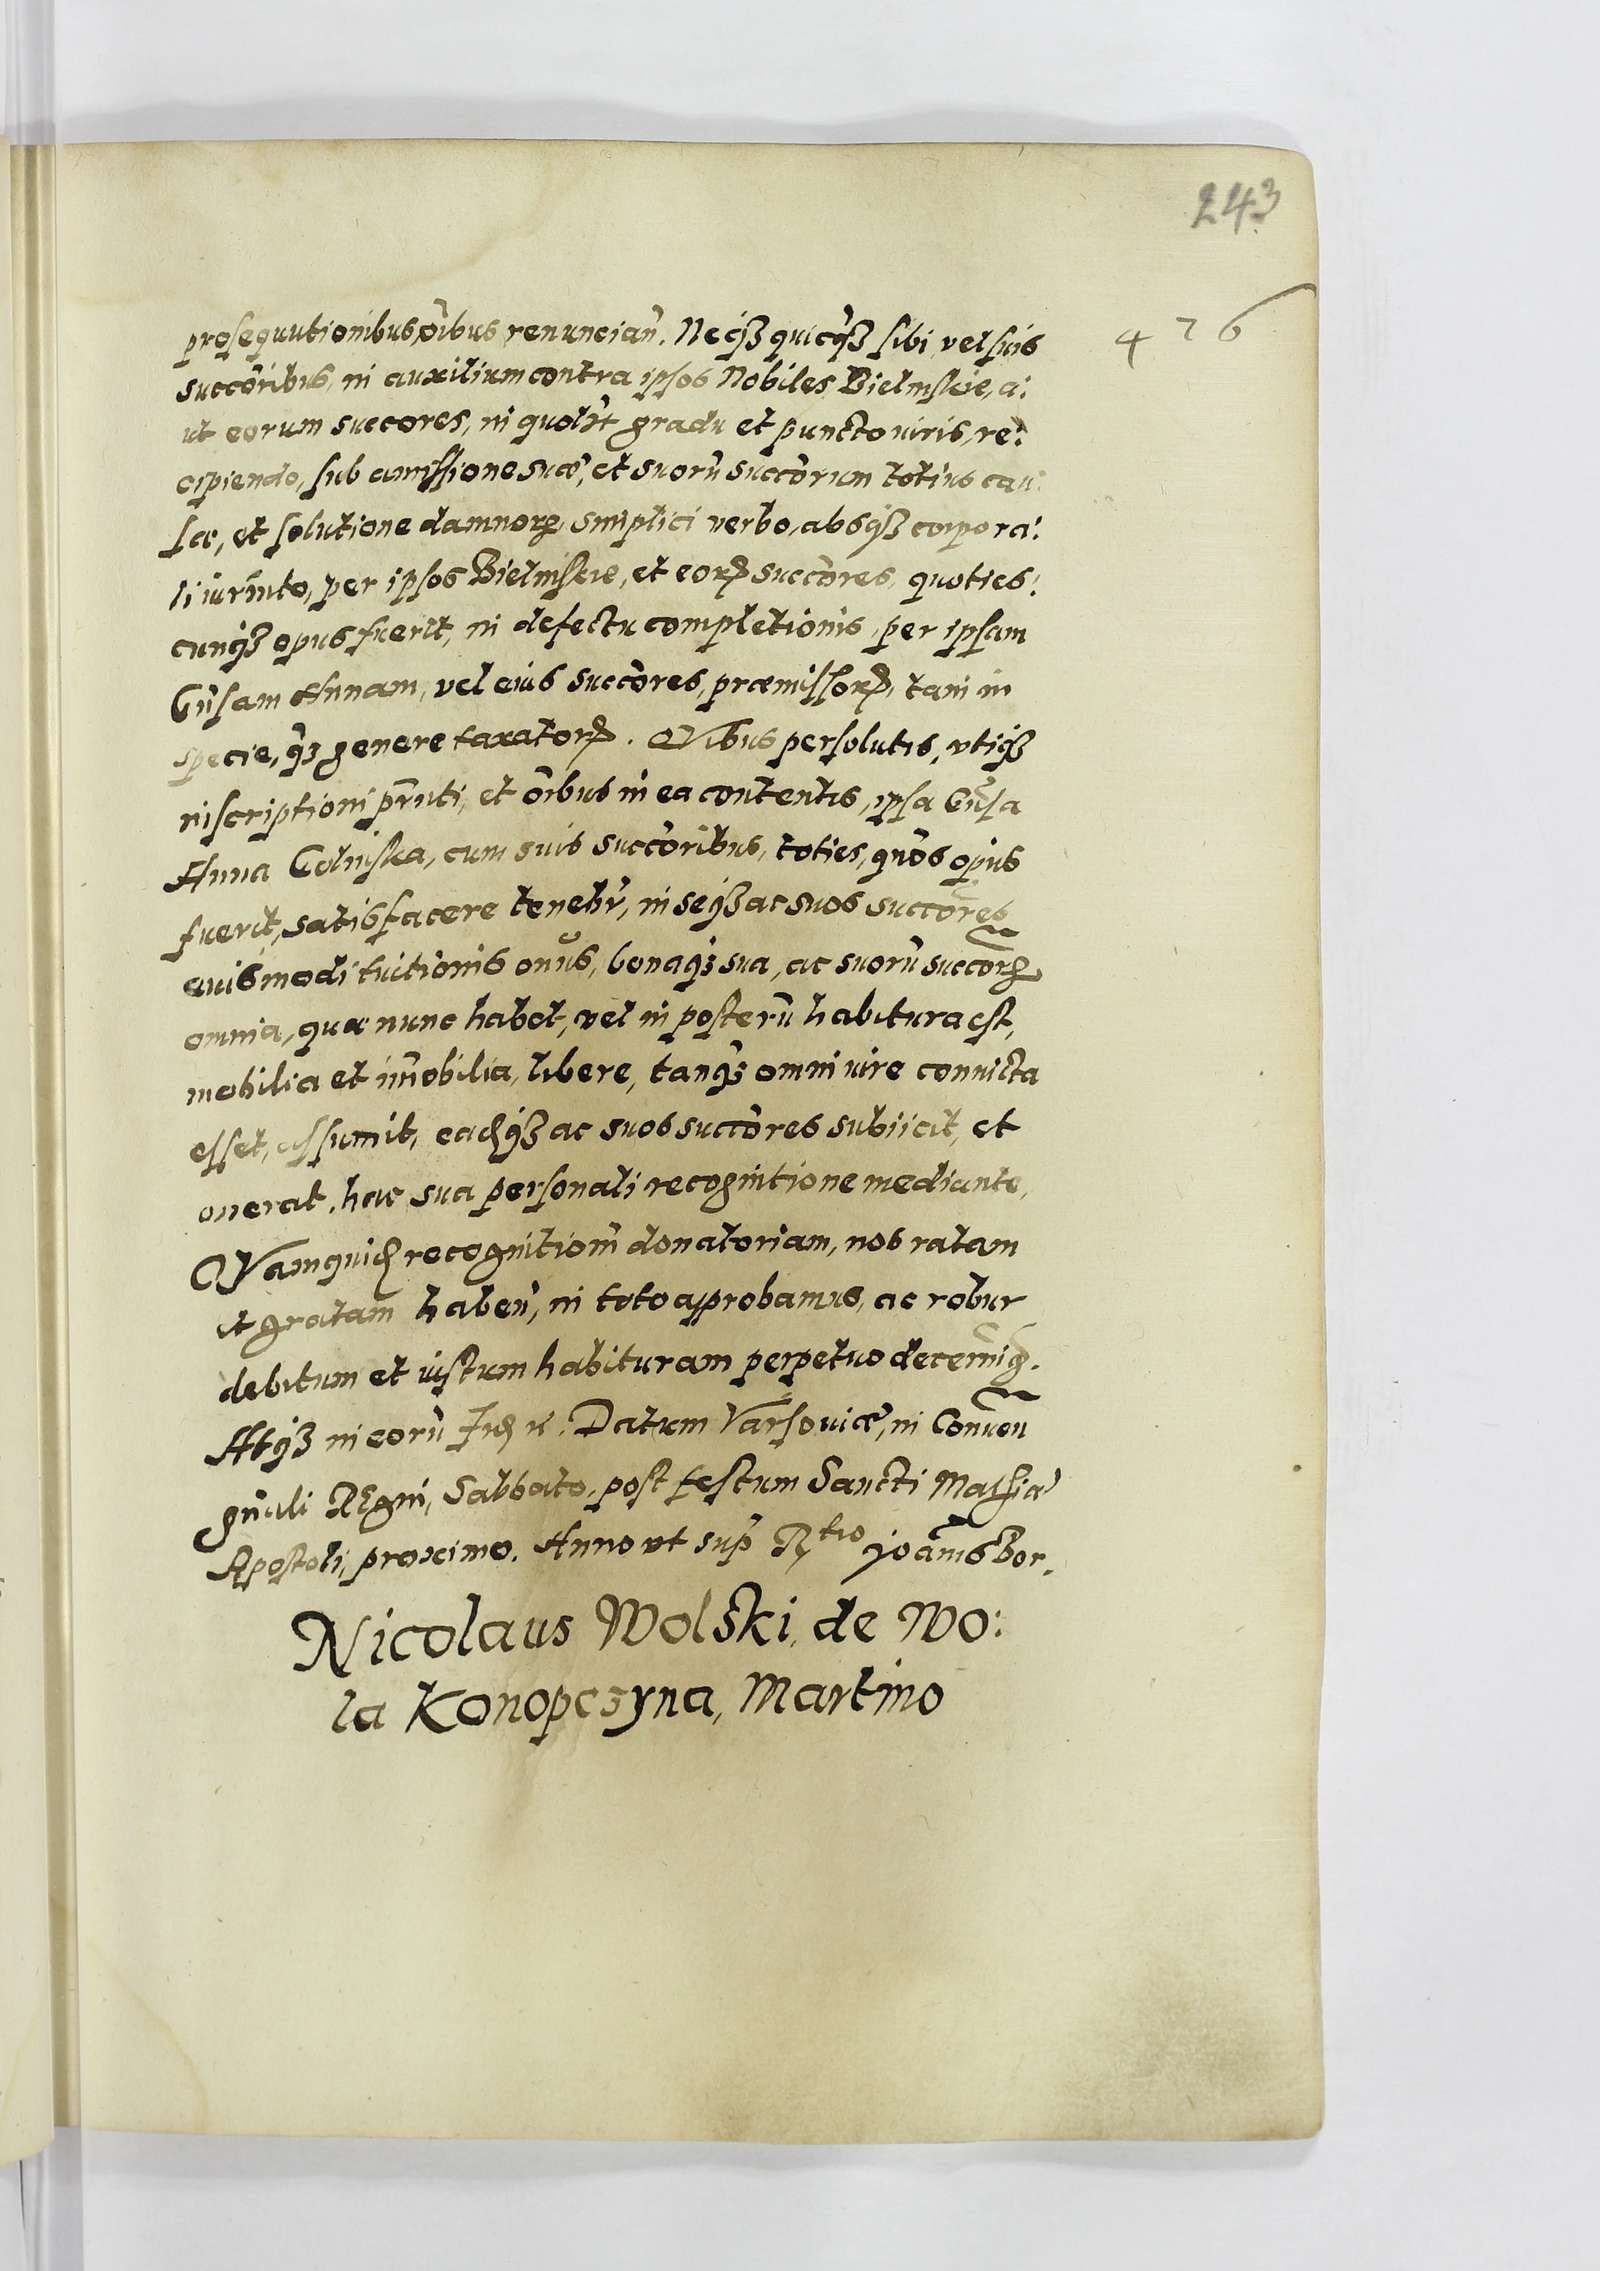 243
476
prosequutionibus o͠ibus renuncian͠. Neqꝫ quicqꝫ sibi, vel suis
succ͠oribus, in auxilium contra ipsos Nobiles Bielinskie, a:
ut eorum succores, in quol͠t gradu et puncto iuris, re:
cipiendo, sub amissione suæ, et suorū succ͠orum totius cau:
sæ, et solutione damnorꝝ, simplici verbo, absqꝫ corpora:
li iur͠nto, per ipsos Bielinskie, et eorꝝ succ͠ores, quoties:
cunqꝫ opus fuerit, in defectu completionis, per ipsam
G͠nsam Annam, vel eius succ͠ores, præmissorꝝ, tam in
specie, q͠ꝫ genere taxatorꝝ. Quibus persolutis, utiqꝫ
inscriptioni pr͠nti, et o͠ibus in ea contentis, ipsa G͠nsa
Anna Golinska, cum suis succ͠oribus, toties, quo͠s opus
fuerit, satisfacere teneb͠r, in seqꝫ ac suos succ͠ores
euismodi tuitionis onus, bonaqꝫ sua, ac suorū succ͠orꝝ
omnia, quæ nunc habet, vel in posterū habitura est,
mobilia et im͠obilia, libere, tanq͠ꝫ omni iure convicta
esset, assumit, eadqꝫ ac suos succ͠ores subiicit, et
onerat, hac sua personali recognitione mediante,
Quamquid recognition͠ donatoriam, nos ratam
et gratam haben͠, in toto approbamus, ac robur
debitum et iustum habituram perpetuo decernim9.
Atqꝫ in eorū fid rc. Datum Varsoviæ, in Conven͠
gn͠ali Regni, Sabbato, post festum Sancti Mathiæ
Apostoli, proximo. Anno ut sup͠ R͠tio Joan͠is Bor.
Nicolaus Wolski, de Wo:
la Konopczyna, Martino